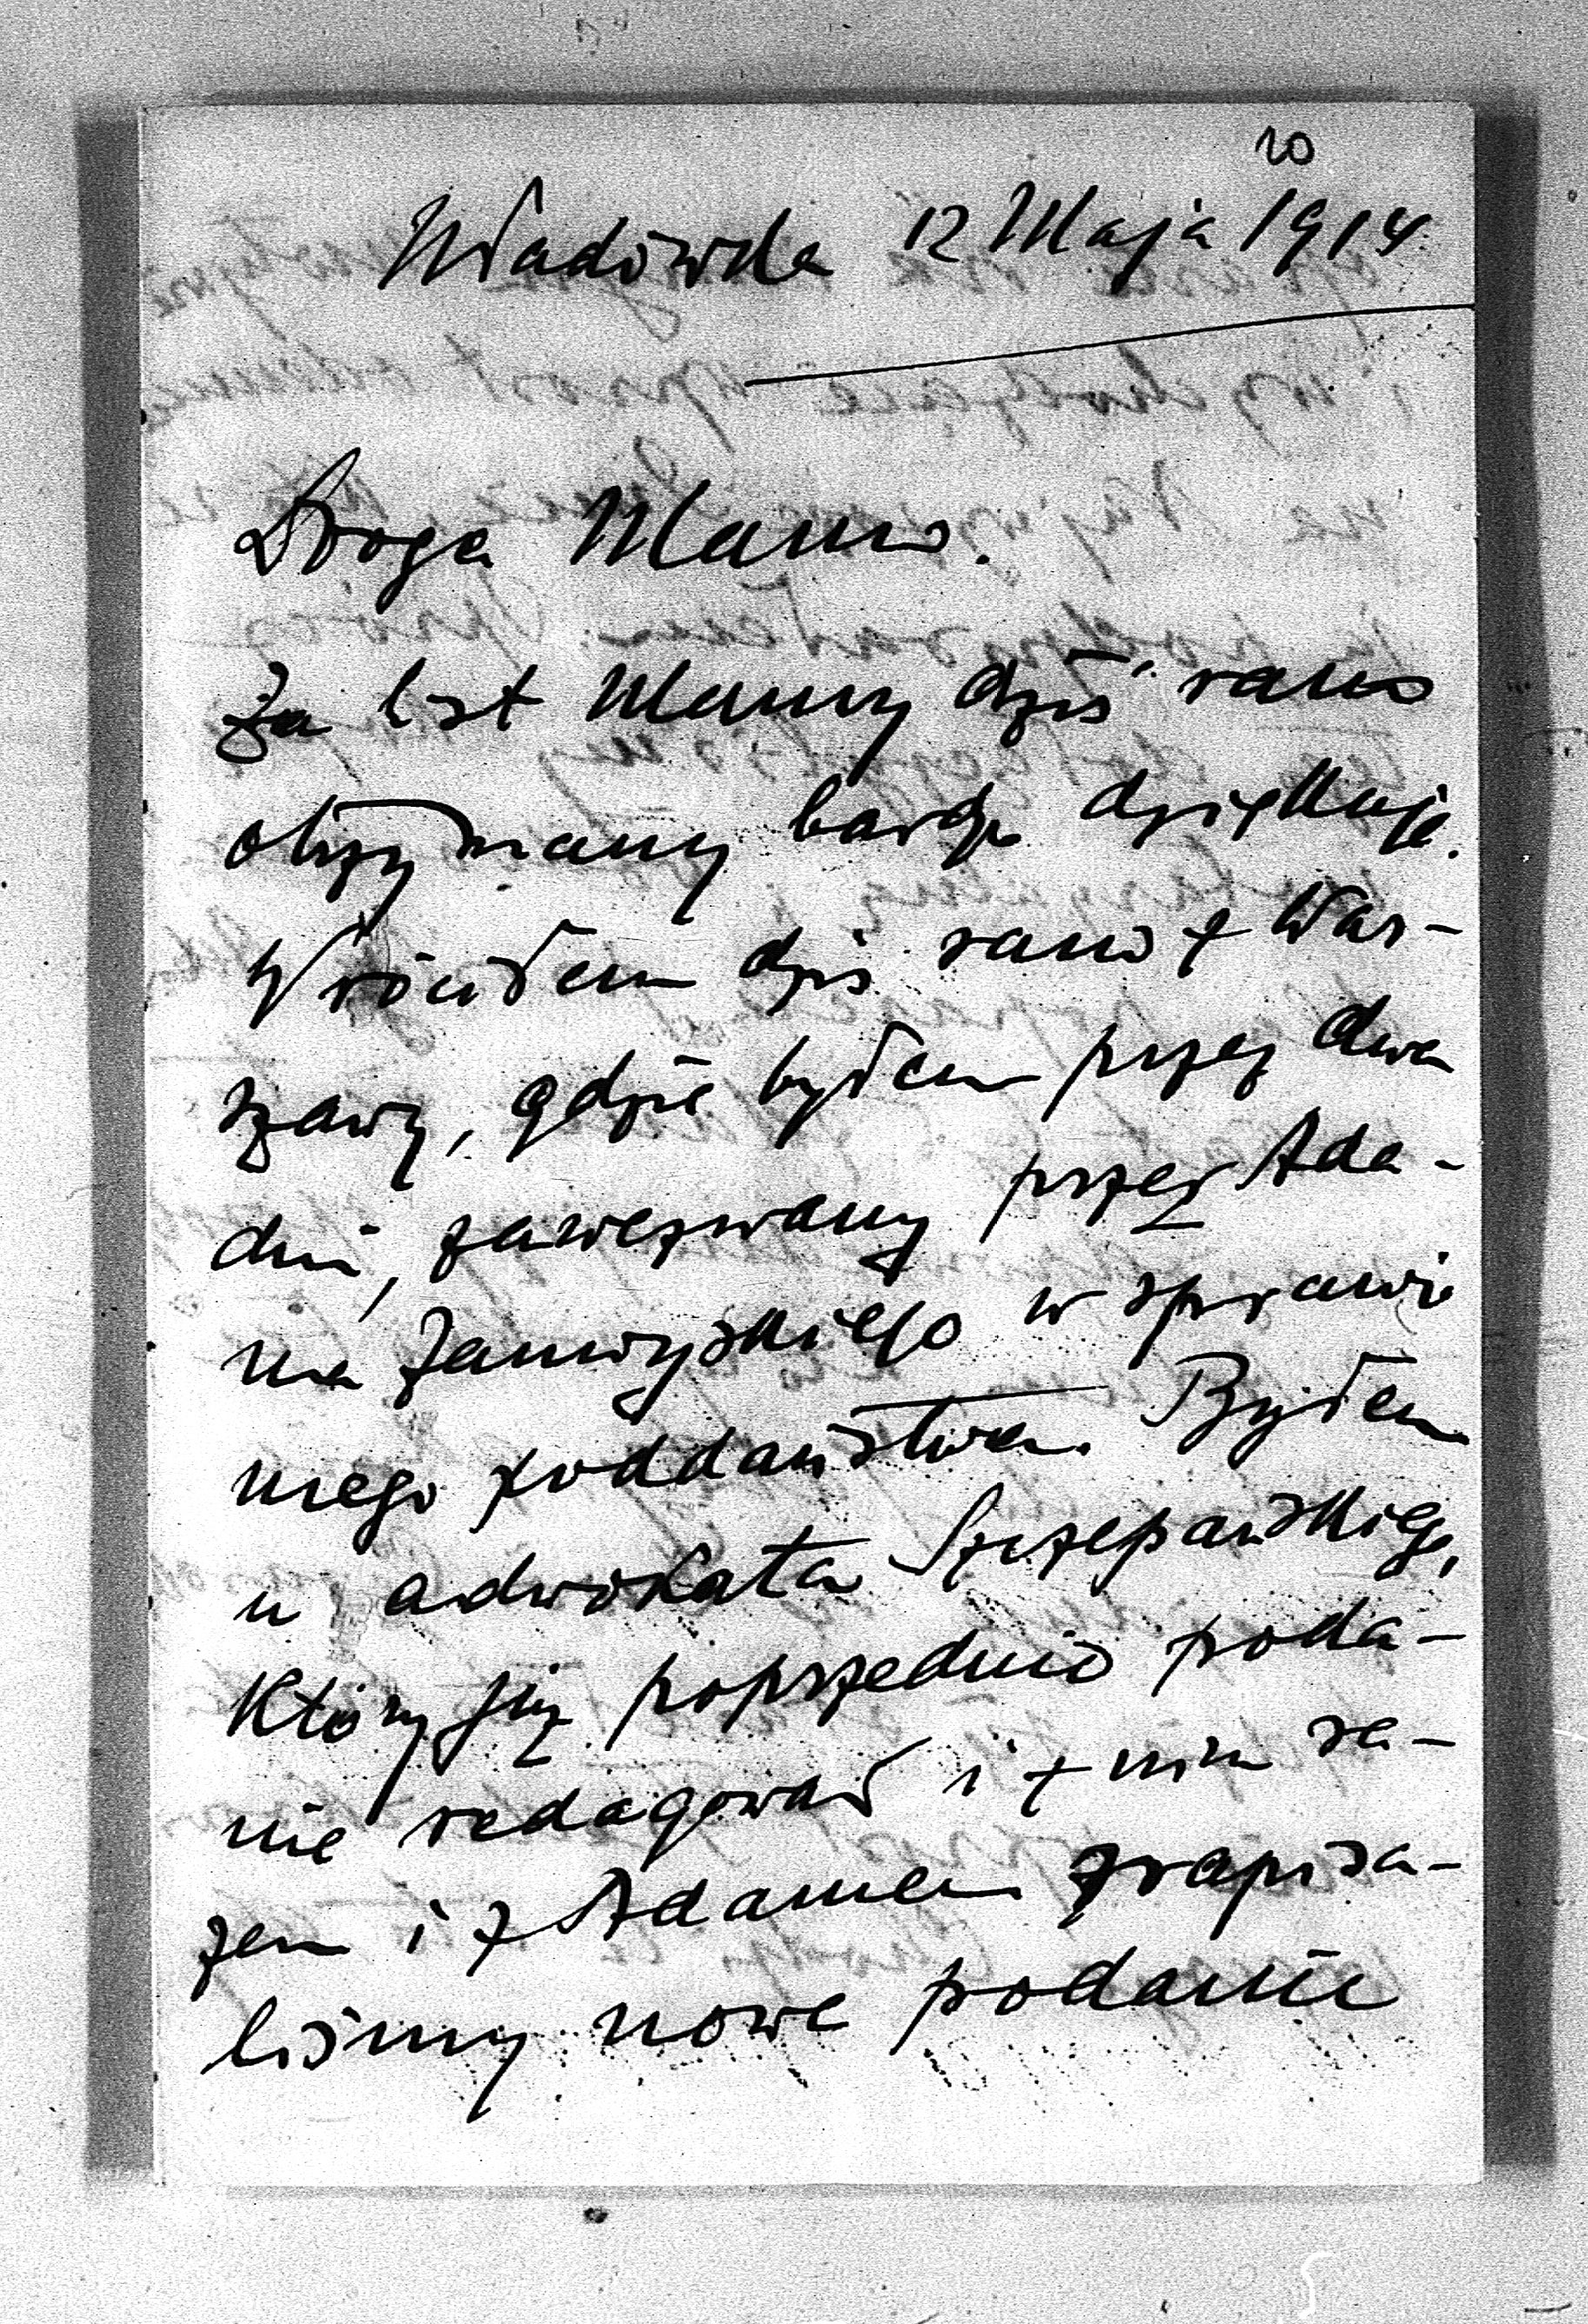 20
Wadówka 12 Maja 1914
Droga Mamo.
Za list Mamy dziś rano
otrzymany bardzo dziękuję.
Wróciłem dziś rano z War-
szawy, gdzie byłem przez dwa
dni, zawezwany przez Ada-
ma Zamoyskiego w sprawie
mego poddaństwa. Byłem
u adwokata Szczepańskiego,
który już poprzednio poda-
nie redagował i z nim ra-
zem i z Adamem zrapisa-
liśmy nowe podanie